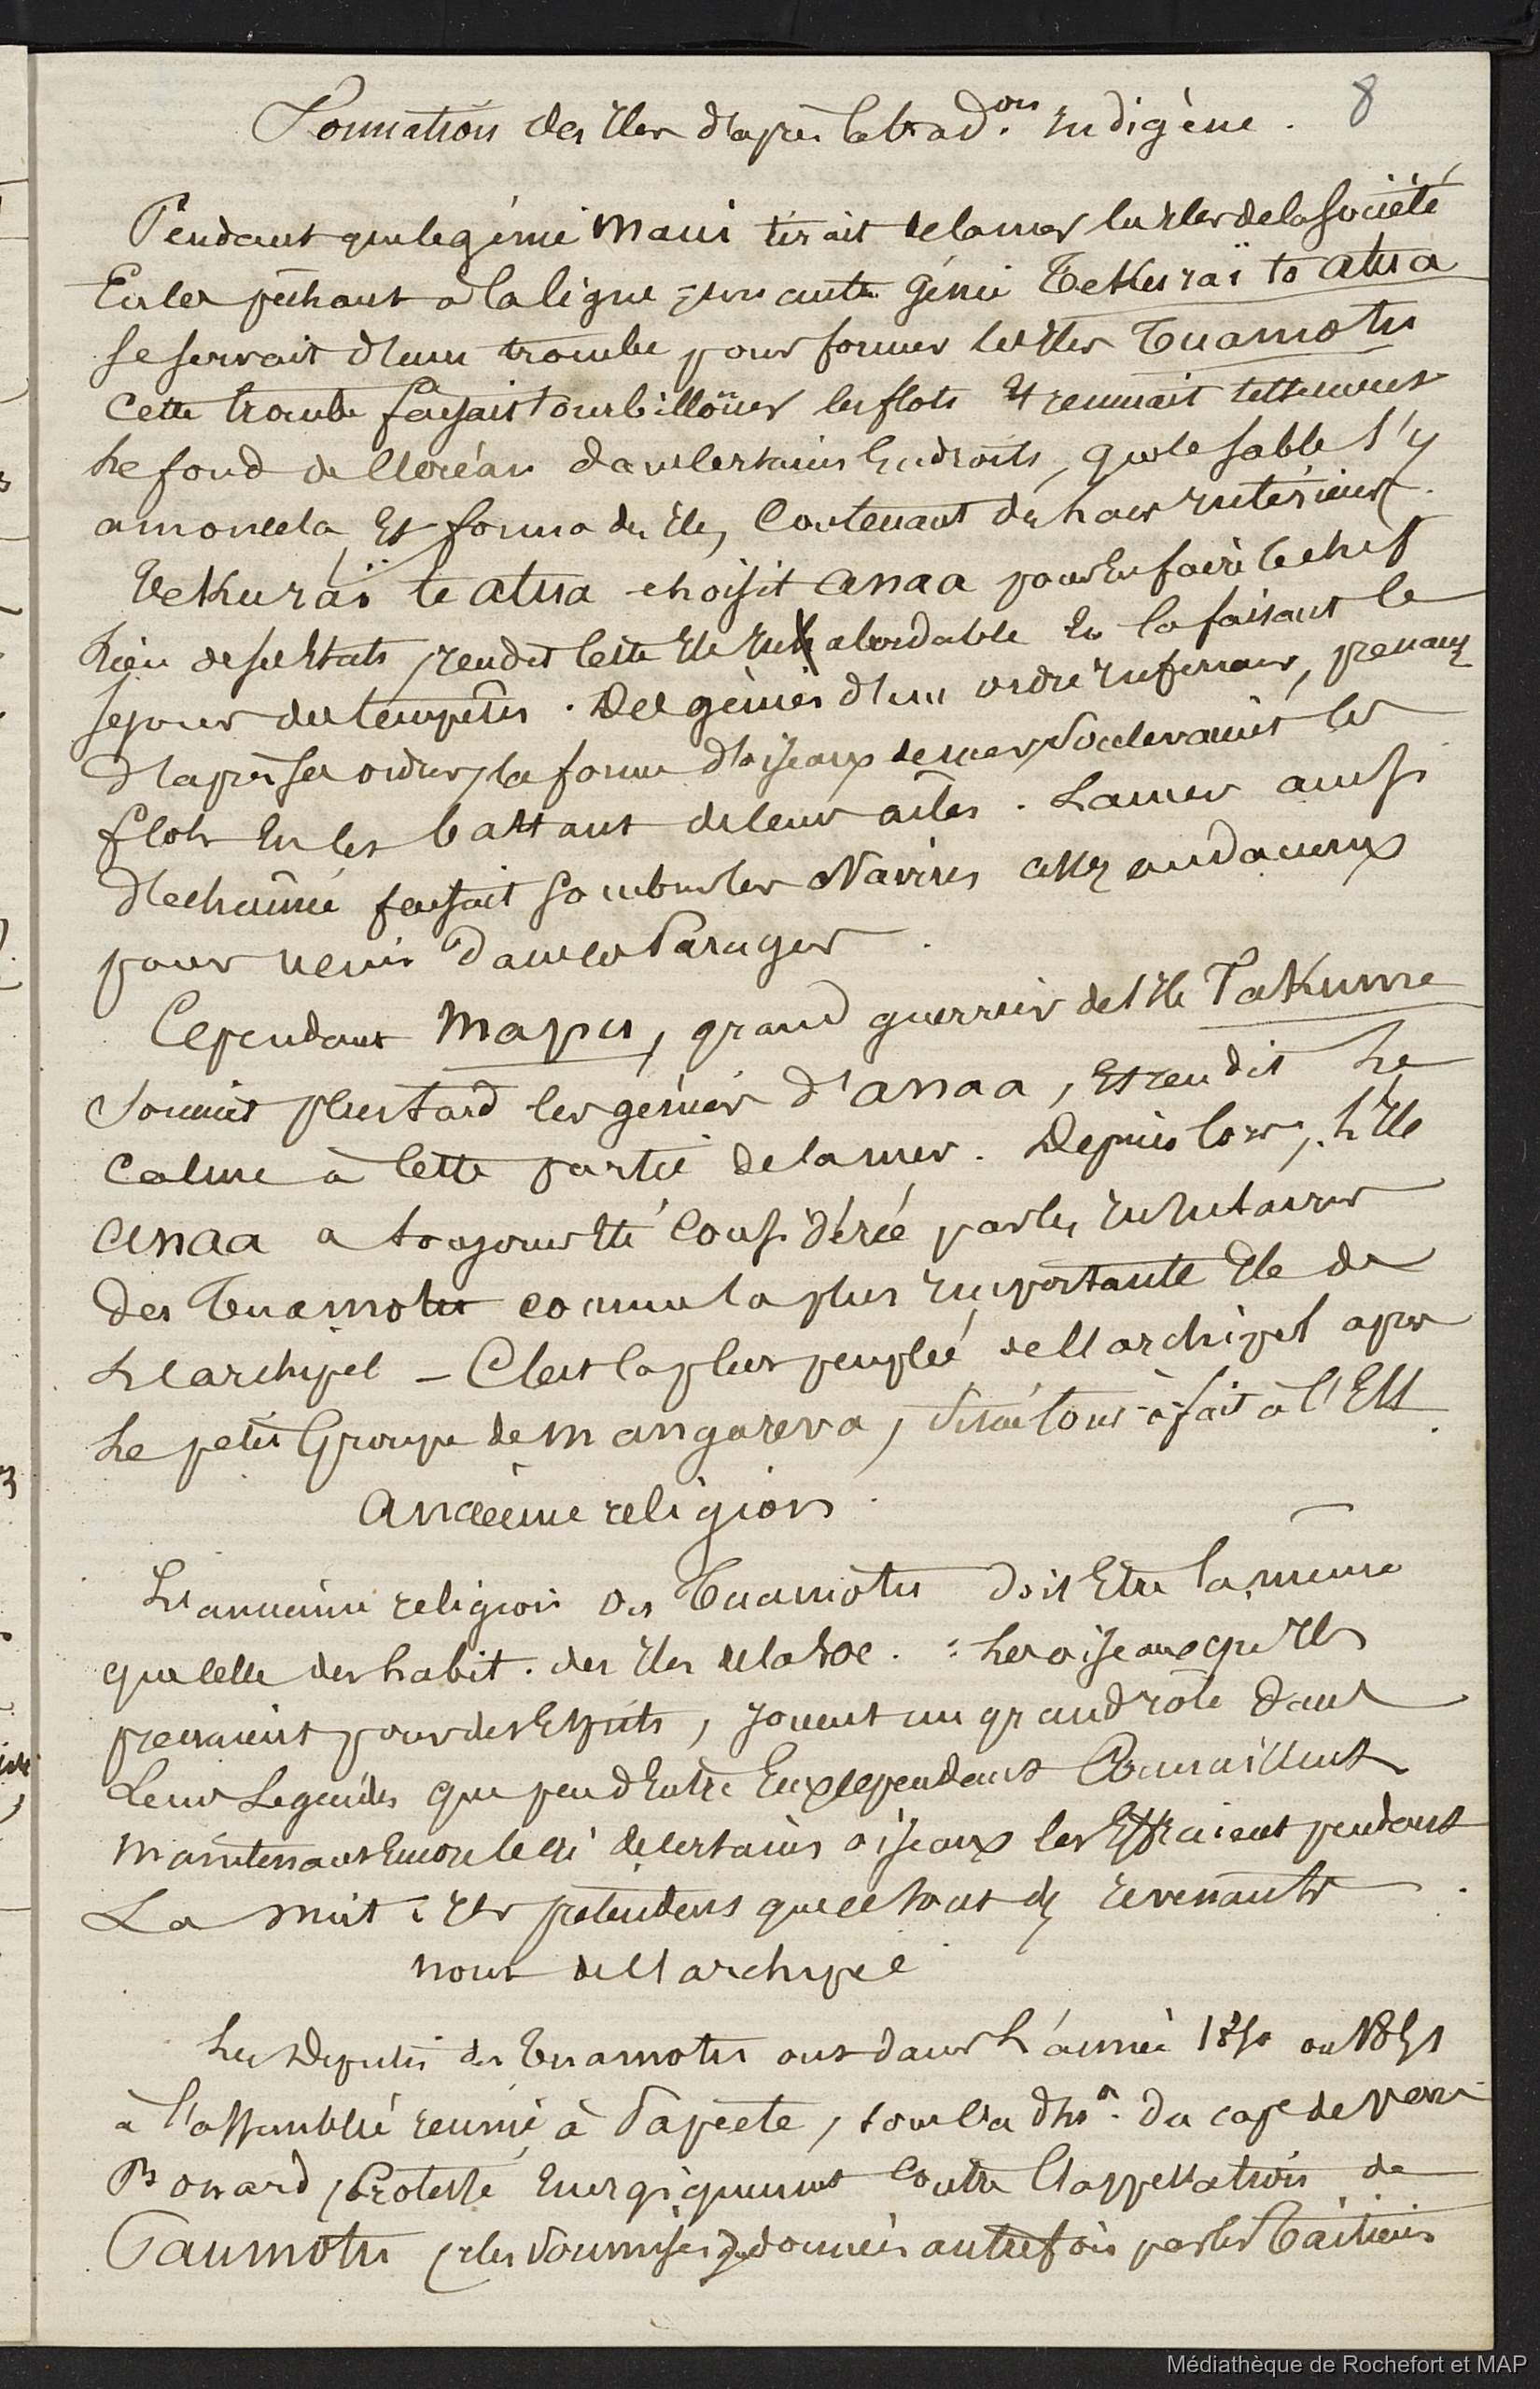 8
Formation des Iles d'après la trad.on Indigène.
Pendant que le génie Maui tirait de la mer les Iles de la Société
En les pêchant à la ligne, un autre génie TeKuraï te atua
se servait d'une trombe pour former les Iles Tuamotu
Cette trombe faisait tourbillonner les flots Et remuait tellement
Le fond de l'Océan dans certains Endroits, que le sable s'y
amoncela Et forma des Iles, Contenant des lacs Intérieurs.
TeKuraï te atua choisit anaa pour En faire le chef
Lieu de ses Etats, rendit cette Ile In abordable En la faisant le
séjour des tempêtes. Des génies d'un ordre Inférieur, prenant
d'après ses ordres, la forme d'oiseaux de mer, Soulevaient les
flots En les battant de leurs ailes. La mer ainsi
déchaînée faisait sombrer les Navires assez audacieux
pour venir dans ces Parages.
Cependant Mapu, grand guerrier de l'Ile TaKume
Soumit plus tard les génies d'anaa, Et rendit Le
Calme à cette partie de la mer. Depuis lors, L'Ile
anaa a toujours Eté Considérée par les Insulaires
des Tuamotu comme la plus Importante Ile de
L'archipel – C'est la plus peuplée de l'archipel après
Le petit Groupe de Mangareva, Situé tout-à-fait à l'Est.
Ancienne religion.
L'ancienne religion des Tuamotu doit Etre la même
que celle des habit. des Iles de la Soc. : Les oiseaux qu'Ils
prennent pour des Esprits, jouent un grand rôle dans
Leurs Legendes que peu d'Entre Eux cependant Connaissent
Maintenant Encore le cri de certains oiseaux les Effraient pendant
La Nuit : Ils prétendent que ce sont des revenants.
noms de l'archipel
Les Députés des Tuamotu ont dans L'année 1850 ou 1851
à l'assemblée réunie à Papéete, sous l'adm.on du cap. de vau
Bonard, Protesté Energiquement Contre l'appellation de
Paumotu (Iles Soumises) donnée autrefois par les Taïtiens
Médiathèque de Rochefort et MAP